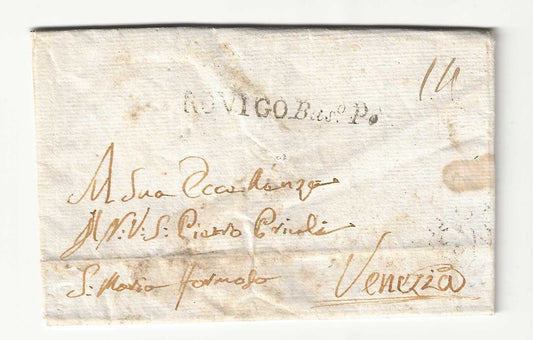 14
ROVIGO Bas.o Po
A Sua Eccellenza
Il N. V. S. Pietro Priuli
S. Maria Formosa
Venezia